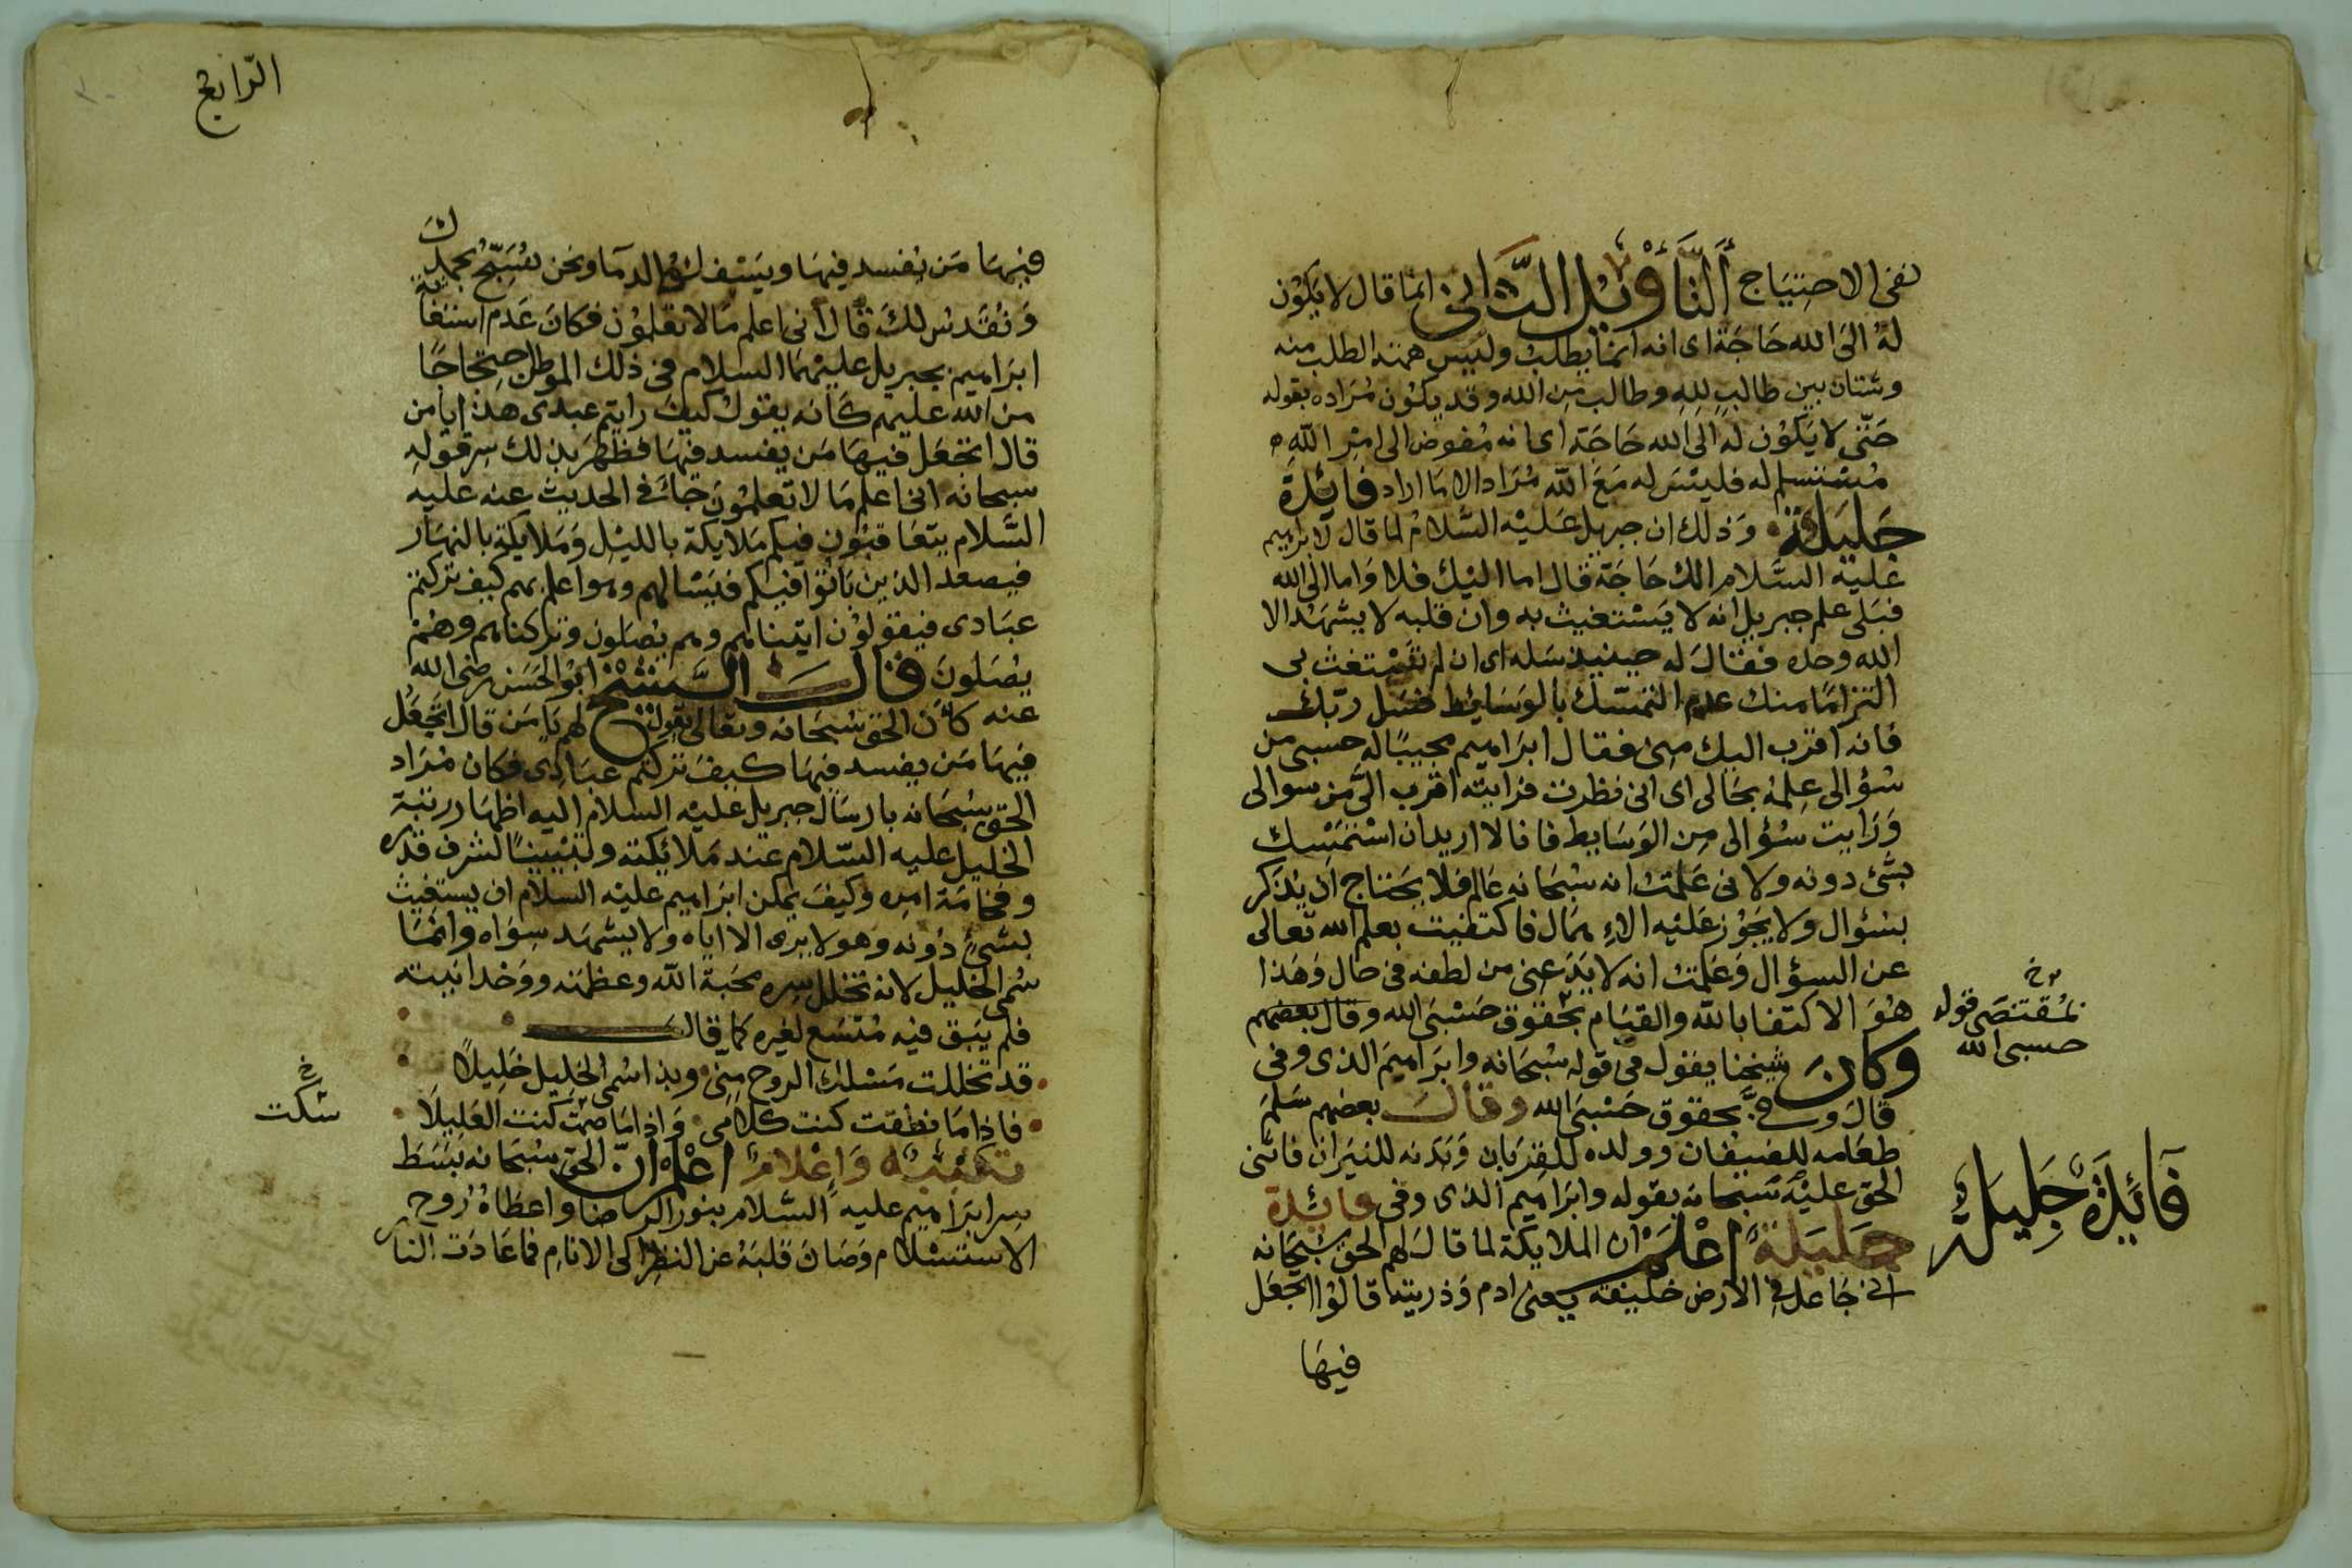 نفى الاحتياج التأويل الثانى انما قال لا يكون
له الى الله حاجة اى انه انما يطلب وليس همته الطلب منه
وشتان بين طالب لله وطالب من الله وقد يكون مراده بقوله
حتى لا يكون له الى الله حاجة اى انه مفوض الى امر الله
مستسلم له فليس له مع الله مراد الا ما اراد فائدة
جليلة وذلك ان جبريل عليه السلام لما قال لابراهيم
عليه السلام الك حاجة قال اما اليك فلا واما الى الله
فبلى علم جبريل انه لا يستغيث به وان قلبه لا يشهد الا
الله وحده فقال له حينيذ سله اى ان لم تستغث بى
التزاما منك عدم التمسك بالوسايط فسل ربك
فانه اقرب اليك منى فقال ابراهيم مجيبا له حسبى من
سؤالى علمه بحالى اى انى نظرت فرايته اقرب الى من سوالى
ورايت سؤالى من الوسايط فانا لا اريد ان استمسك
بشئ دونه ولانى علمت انه سبحانه عالم فلا يحتاج ان يذكر
بسؤال ولا يجوز عليه الاهمال فاكتفيت بعلم الله تعالى
عن السؤال وعلمت انه لا يدعنى من لطفه فى حال وهذا
هو الاكتفا بالله والقيام بحقوق حسبى الله وقال بعضهم
وكان شيخنا يقول فى قوله سبحانه وابراهيم الذى وفى
قال وفى بحقوق حسبى الله وقال بعضهم سلم
طعامه للضيفان وولده للقربان وبدنه للنيران فاثنى
الحق عليه سبحانه بقوله وابراهيم الذى وفى فائدة
جليلة اعلم ان الملايكة لما قال لهم الحق سبحانه
انى جاعل فى الارض خليفة يعنى ادم وذريته قالوا اتجعل
فيها
خ
بمقتضى قوله
حسبى الله
فائدة جليلة
الرابع
فيها من يفسد فيها ويسفك الدما ونحن نسبح بحمدك
ونقدس لك قال انى اعلم ما لا تعلمون فكان عدم استغاثة
ابراهيم بجبريل عليهما السلام فى ذلك الموطن احتجاجا
من الله عليهم كانه يقول كيف رايتم عبدى هذا يا من
قال اتجعل فيها من يفسد فيها فظهر بذلك سر قوله
سبحانه انى اعلم ما لا تعلمون جا فى الحديث عنه عليه
السلام يتعاقبون فيكم ملايكة بالليل وملايكة بالنهار
فيصعد الذين باتوا فيكم فيسالهم وهو اعلم بهم كيف تركتم
عبادى فيقولون اتيناهم وهم يصلون وتركناهم وهم
يصلون قال الشيخ ابو الحسن رضى الله
عنه كان الحق سبحانه وتعالى يقول لهم يا من قال اتجعل
فيها من يفسد فيها كيف تركتم عبادى فكان مراد
الحق سبحانه بارسال جبريل عليه السلام اليه اظهار رتبة
الخليل عليه السلام عند ملائكته وتبيينا لشرف قدره
وفخامة امره وكيف يمكن ابراهيم عليه السلام ان يستغيث
بشئ دونه وهو لا يرى الا اياه ولا يشهد سواه وانما
سمى الخليل لانه تخلل سره محبة الله وعظمته ووحدانيته
فلم يبق فيه متسع لغيره كما قال
قد تخللت مسلك الروح منى وبذا سمى الخليل خليلا
فاذا ما نطقت كنت كلامى واذا ما صمت كنت الغليلا
تنبيه واعلام اعلم ان الحق سبحانه بسط
سر ابراهيم عليه السلام بنور الرضا واعطاه روح
الاستسلام وصان قلبه عن النظر الى الانام فما عادت النار
خ
سكت